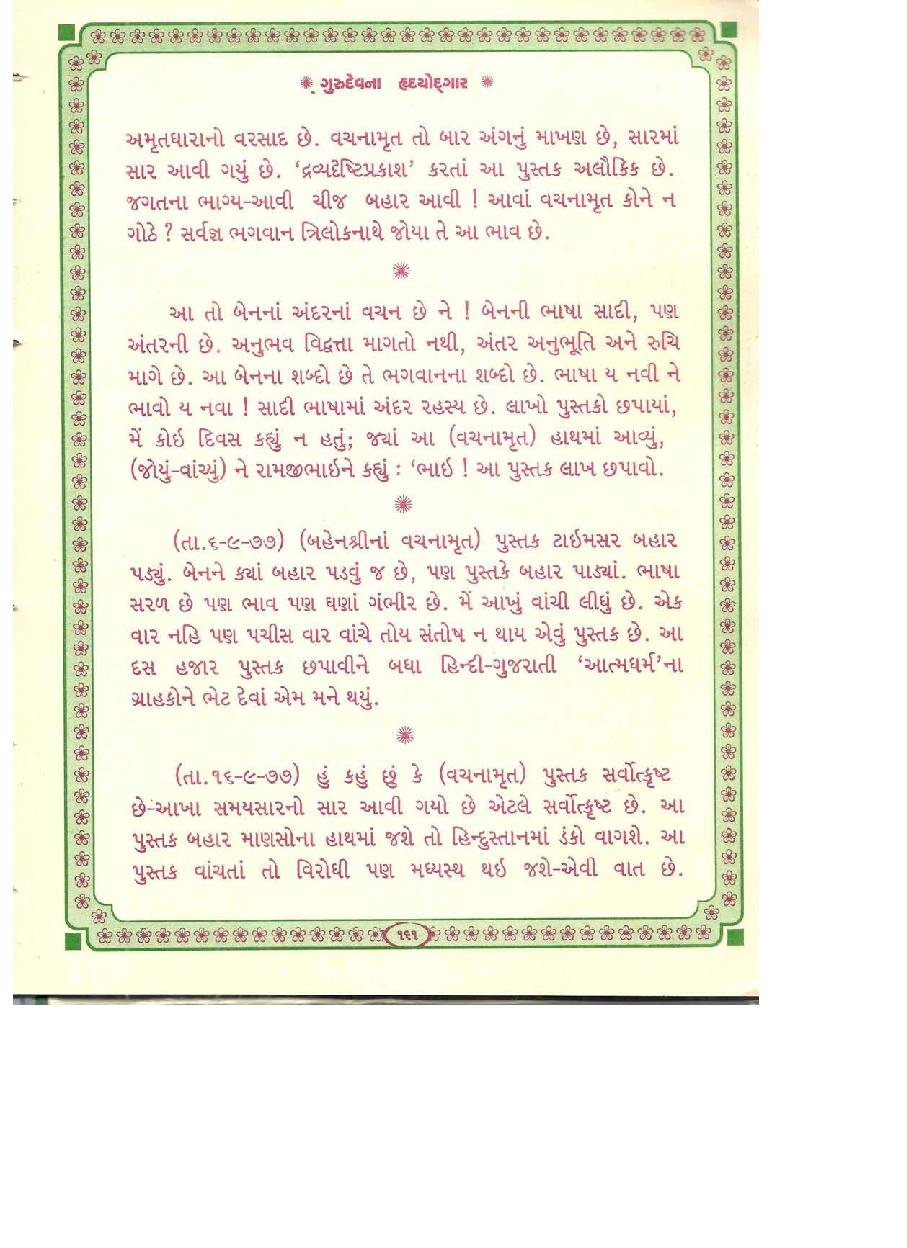 ગુરુદેવના હૃદયોદ્ગાર
અમૃતધારાનો વરસાદ છે. વચનામૃત તો બાર અંગનું માખણ છે, સારમાં
સાર આવી ગયું છે. ‘દ્રવ્યદૃષ્ટિપ્રકાશ’ કરતાં આ પુસ્તક અલૌકિક છે.
જગતના ભાગ્ય-આવી ચીજ બહાર આવી ! આવાં વચનામૃત કોને ન
ગોઠે ? સર્વજ્ઞ ભગવાન ત્રિલોકનાથે જોયા તે આ ભાવ છે.
આ તો બેનનાં અંદરનાં વચન છે ને ! બેનની ભાષા સાદી, પણ
અંતરની છે. અનુભવ વિદ્વત્તા માગતો નથી, અંતર અનુભૂતિ અને રુચિ
માગે છે. આ બેનના શબ્દો છે તે ભગવાનના શબ્દો છે. ભાષા ય નવી ને
ભાવો ય નવા ! સાદી ભાષામાં અંદર રહસ્ય છે. લાખો પુસ્તકો છપાયાં,
મેં કોઇ દિવસ કહ્યું ન હતું; જ્યાં આ (વચનામૃત) હાથમાં આવ્યું,
(જોયું-વાંચ્યું) ને રામજીભાઇને કહ્યું : ‘ભાઇ ! આ પુસ્તક લાખ છપાવો.
(તા.૬-૯-૭૭) (બહેનશ્રીનાં વચનામૃત) પુસ્તક ટાઇમસર બહાર
પડ્યું. બેનને ક્યાં બહાર પડવું જ છે, પણ પુસ્તકે બહાર પાડ્યાં. ભાષા
સરળ છે પણ ભાવ પણ ઘણાં ગંભીર છે. મેં આખું વાંચી લીધું છે. એક
વાર નહિ પણ પચીસ વાર વાંચે તોય સંતોષ ન થાય એવું પુસ્તક છે. આ
દસ હજાર પુસ્તક છપાવીને બધા હિન્દી-ગુજરાતી ‘આત્મધર્મ’ના
ગ્રાહકોને ભેટ દેવાં એમ મને થયું.
(તા.૧૬-૯-૭૭) હું કહું છું કે (વચનામૃત) પુસ્તક સર્વોત્કૃષ્ટ
છે-આખા સમયસારનો સાર આવી ગયો છે એટલે સર્વોત્કૃષ્ટ છે. આ
પુસ્તક બહાર માણસોના હાથમાં જશે તો હિન્દુસ્તાનમાં ડંકો વાગશે. આ
પુસ્તક વાંચતાં તો વિરોધી પણ મધ્યસ્થ થઇ જશે-એવી વાત છે.
૧૬૧